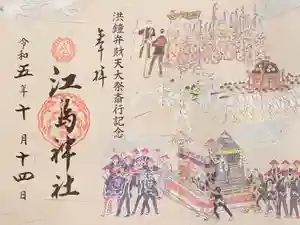 奉拝
洪鐘弁財天大祭斎行記念
江島神社
令和五年十月十四日